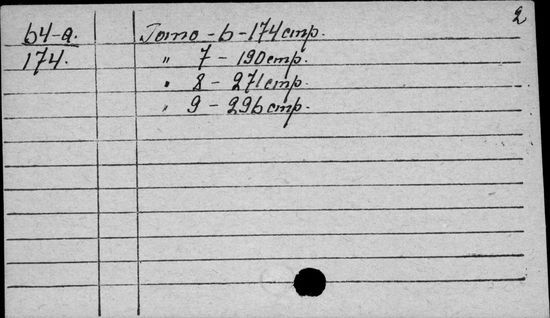 2
64-a. Tomo - 6 - 174 стр.
174. " 7 - 190 стр.
" 8 - 271 стр.
" 9 - 296 стр.